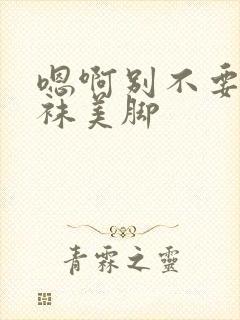 嗯啊别不要
袜美脚
青霖之靈